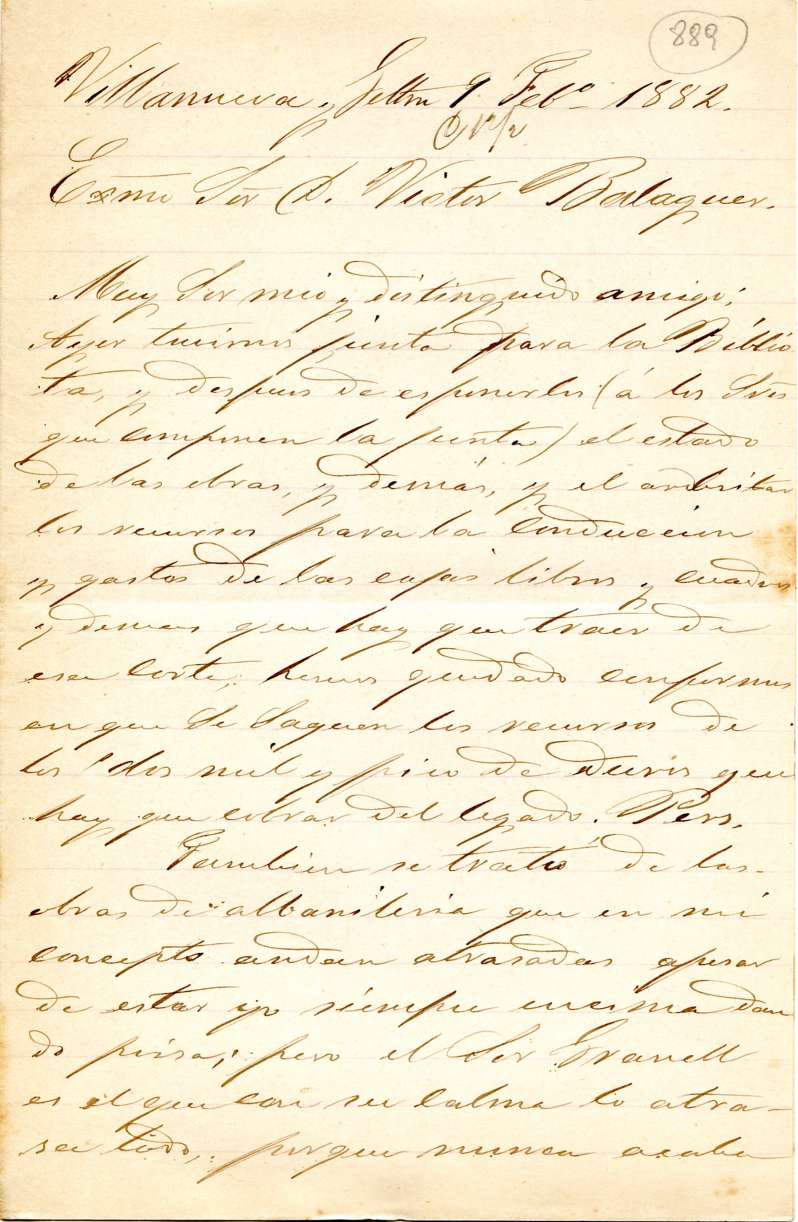 889
Villanueva y Geltru 9 Febº 1882.
Exmo Sor D. Victor Balaguer.
Muy Sor mio y distinguido amigo;
Ayer tuvimos junta para la Biblio
ta, y despues de esponerles (á los Sres
que componen la junta) el estado
de las obras, y demás, y el arbitrar
los recursos para la conduccion
y gastos de las cajas libros y cuadros
y demas que hay que traer de
esa Corte, hemos quedado conformes
en que se saquen los recursos de
los dos mil y pico de duros que
hay que cobrar del legado. Pers.
Tambien se trató de las
obras de albanileria que en mi
concepto andan atrasadas apesar
de estar yo siempre encima dan
do prisa; pero el Sor Granell
es el que con su calma lo atra-
sa todo, porque nunca acaba